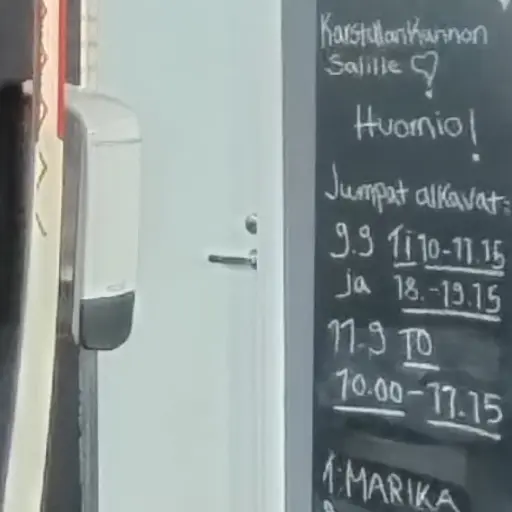 Karstullan Kunnon
Salille ♡
Huomio!
Jumpat alkavat:
9.9 Ti 10-11.15
ja 18.-19.15
11.9 TO
10.00-11.15
1: MARIKA